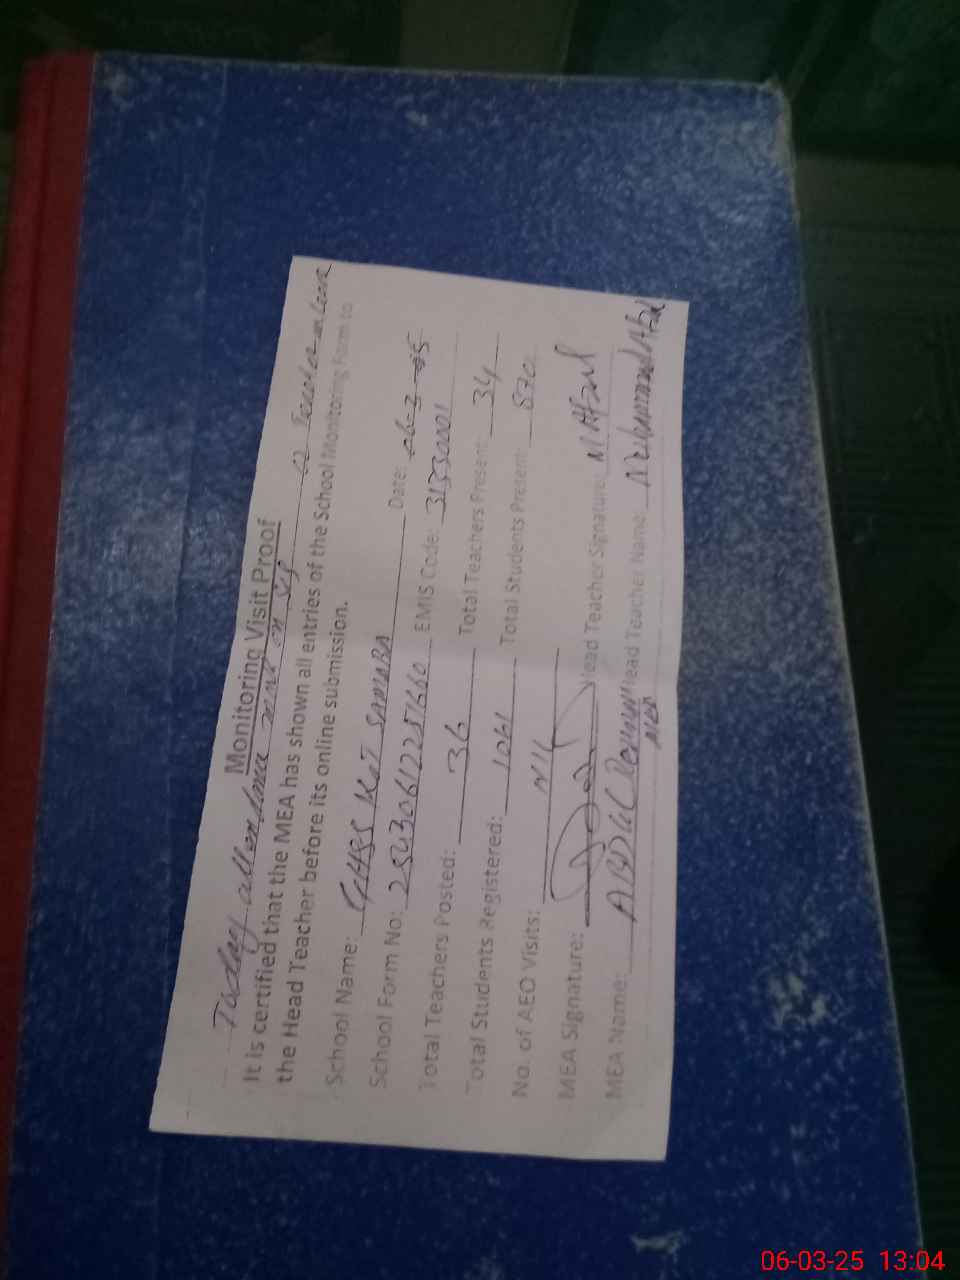 Monitoring Visit Proof
Today attendance sent on SIS 02 Teacher on Leave
It is certified that the MEA has shown all entries of the School Monitoring Form to
the Head Teacher before its online submission.
School Name: GHSS KOT SAMABA Date: 06-3-25
School Form No: EMIS Code: 31330001
Total Teachers Posted: 36 Total Teachers Present: 34
Total Students Registered: 1061 Total Students Present: 870
No. of AEO Visits: Nil
MEA Signature: Head Teacher Signature: M Afzal
MEA Name: ABDUL Rehman Head Teacher Name: Muhammad Afzal
06-03-25 13:04